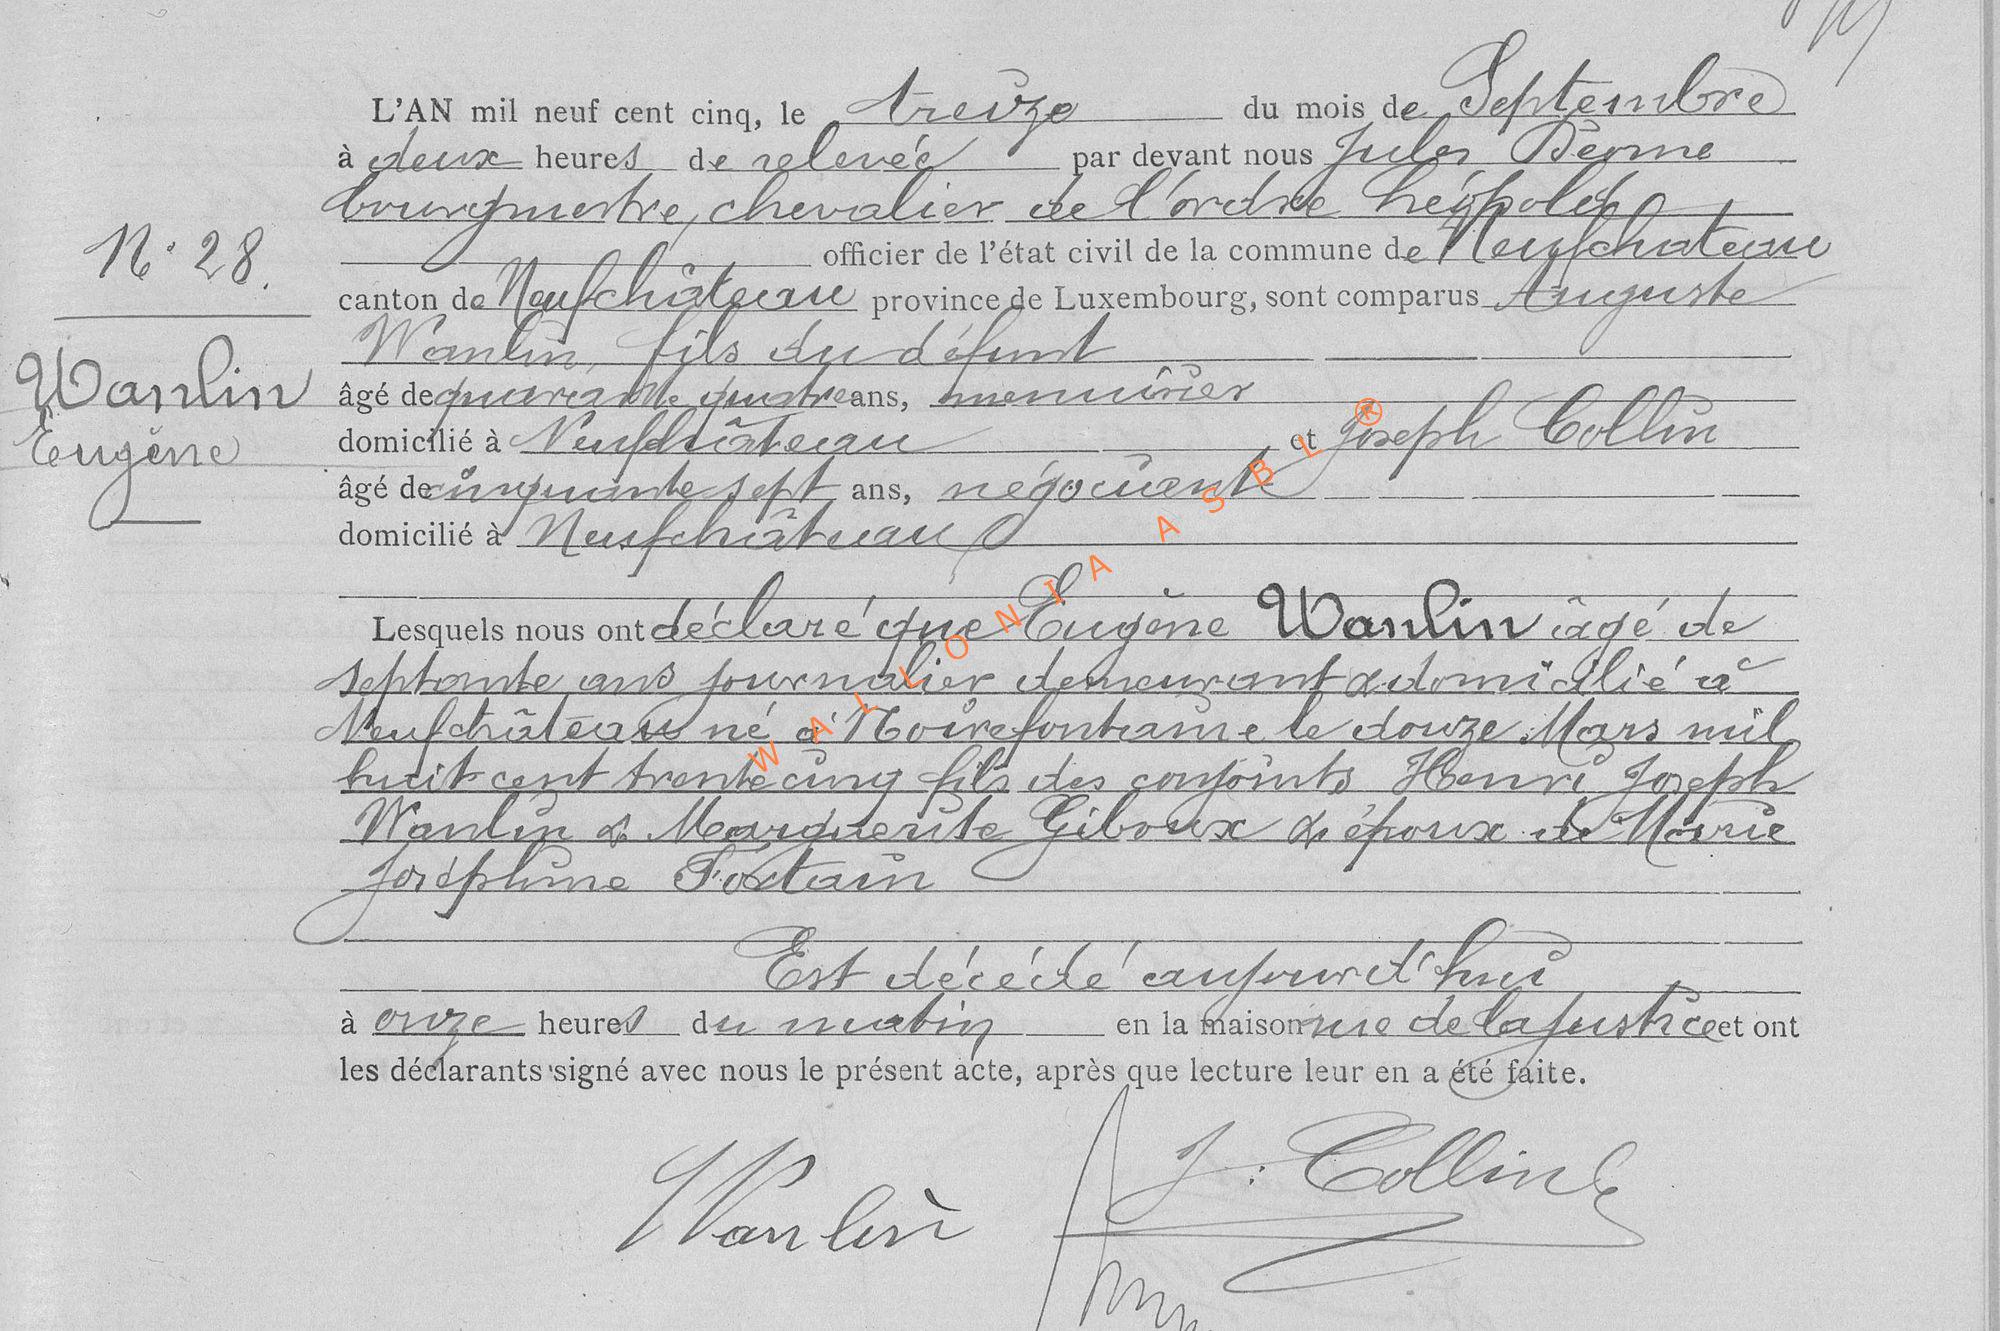 L'AN mil neuf cent cinq, le treize du mois de Septembre
à deux heures de relevée par devant nous Jules
bourgmestre, chevalier de l'ordre Léopold
N° 28. officier de l'état civil de la commune de Neufchateau
canton de Neufchâteau province de Luxembourg, sont comparus Auguste
Wanlin fils du défunt
Wanlin âgé de quarante quatre ans, menuisier
Eugène domicilié à Neufchâteau et Joseph Collin
âgé de cinquante sept ans, négociant
domicilié à Neufchâteau
Lesquels nous ont déclaré que Eugène Wanlin âgé de
septante ans journalier demeurant & domicilié à
Neufchâteau né à Noirefontaine le douze Mars mil
huit cent trente cinq fils des conjoints Henri Joseph
Wanlin & Marguerite Giboux & époux de Marie
Joséphine Fortain
Est décédé aujourd'hui
à onze heures du matin en la maison rue de la justice et ont
les déclarants signé avec nous le présent acte, après que lecture leur en a été faite.
J: Collin
Wanlin
WALLONIA ASBL ®